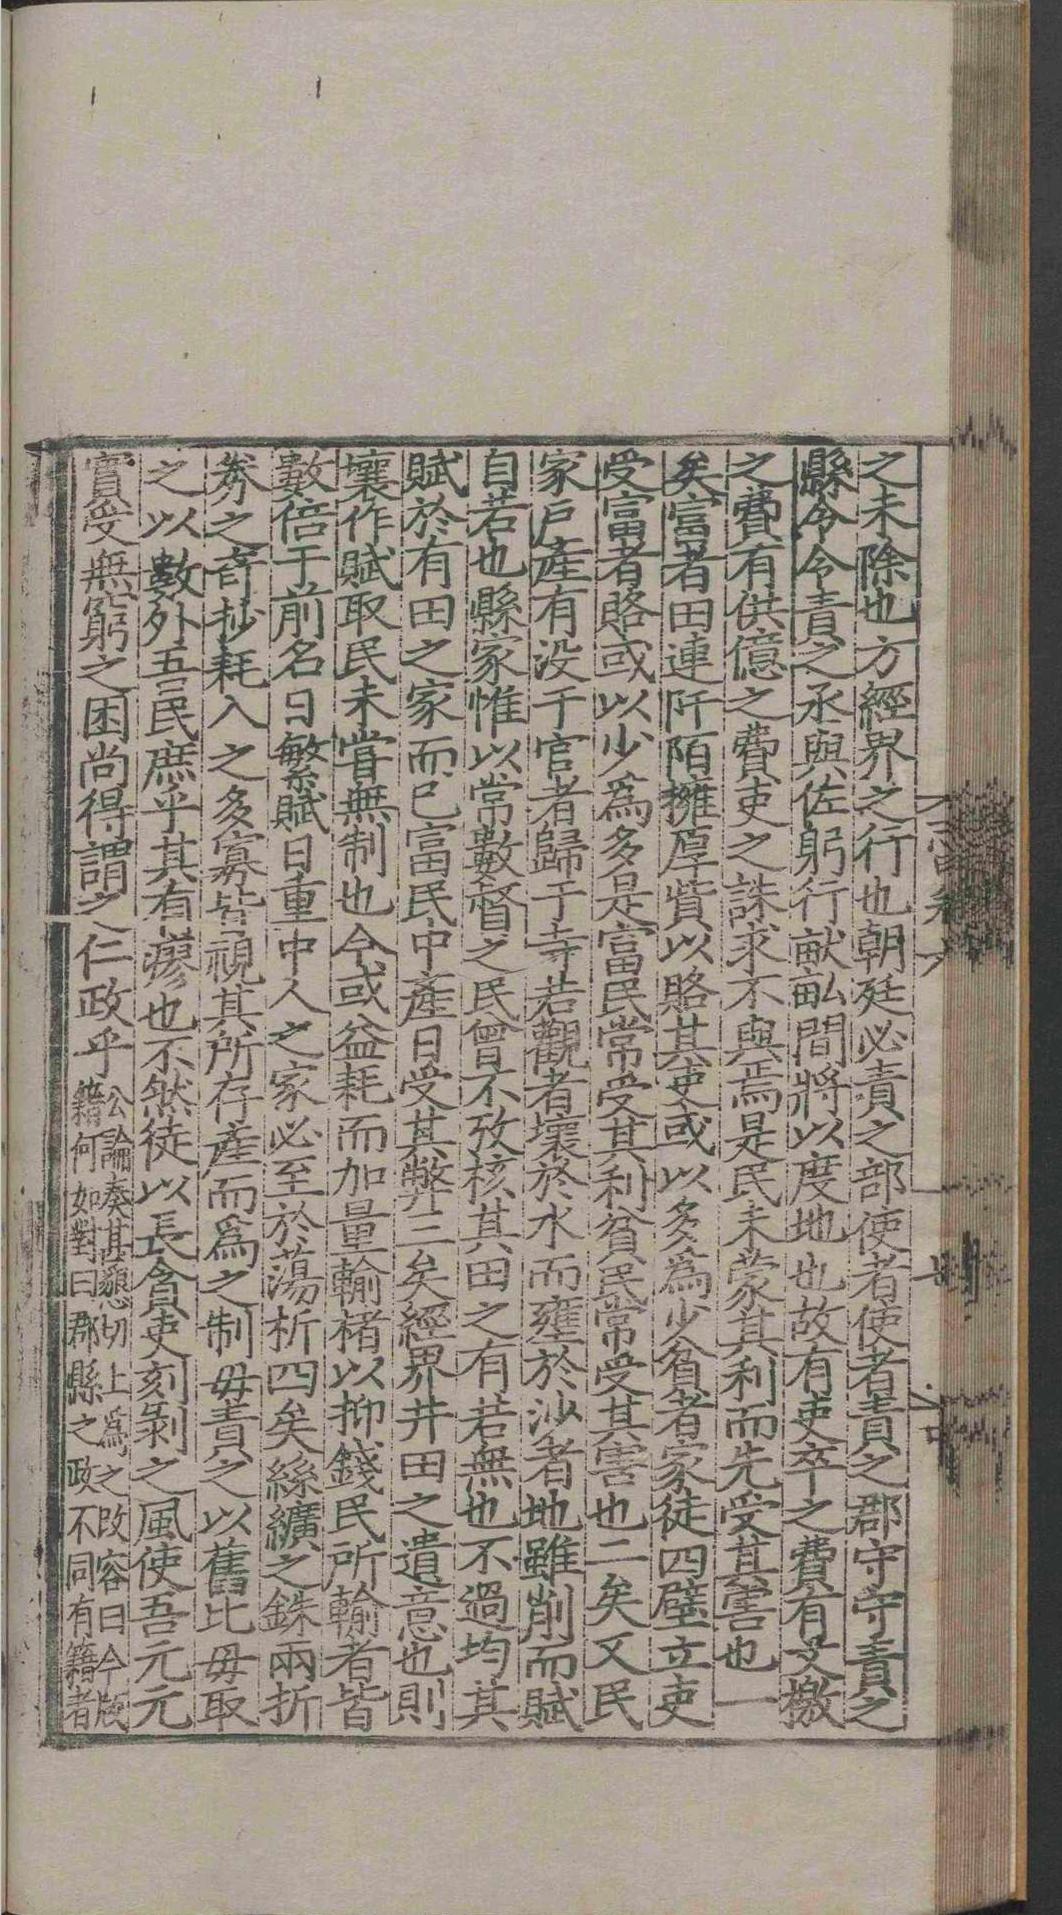 之未除也方經界之行也朝廷必責之部使者使者責之郡守守責之
縣令令責之丞與佐躬行畎畆間將以度地也故有吏卒之費有文檄
之費有供億之費吏之誅求不與焉是民未蒙其利而先受其害也一
矣富者田連阡陌擁厚貲以賂其吏或以多爲少貧者家徒四壁立吏
受富者賂或以少爲多是富民常受其利貧民常受其害也二矣又民
家戸產有没于官者歸于寺若觀者壞於水而壅於沙者地雖削而賦
自若也縣家惟以常數督之民曾不攷核其田之有若無也不過均其
賦於有田之家而已富民中產日受其弊三矣經界井田之遺意也則
壤作賦取民未嘗無制也今或益耗而加量輸楮以抑錢民所輸者皆
數倍于前名曰繁賦日重中人之家必至於蕩析四矣絲纊之銖兩折
劵之竒抄耗入之多寡皆視其所存產而爲之制毋責之以舊比毋取
之以數外吾民庶乎其有瘳也不然徒以長貪吏刻剝之風使吾元元
實受無窮之困尚得謂之仁政乎
公論奏甚懇切上爲之改容曰今版
籍何如對曰郡縣之政不同有籍者